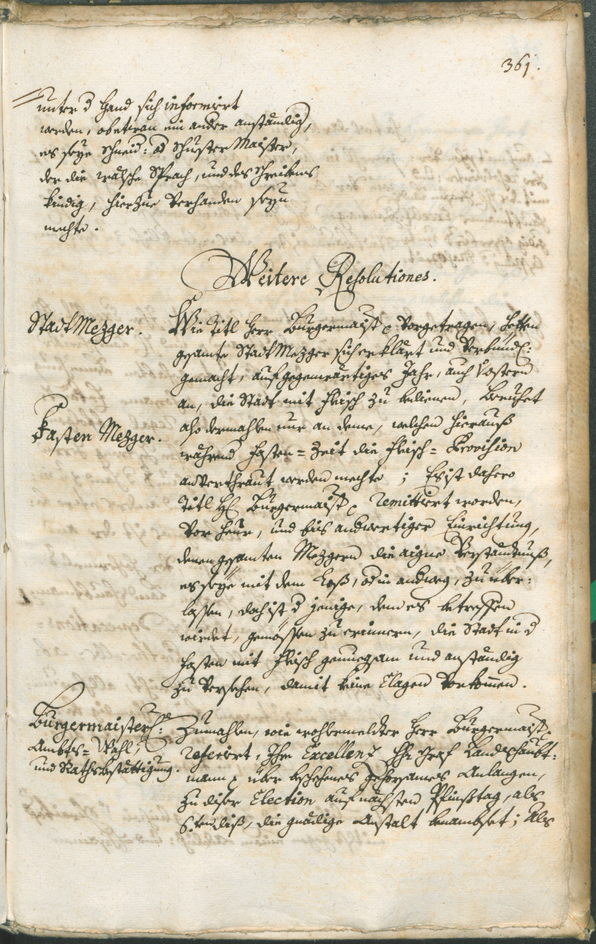 361.
unter d Hand sich informiert
werden, ob etwan ein ander anständig,
es seye Schneid: od Schuster Maister,
der die wälsche Sprach, und des Schreibens
kündig, hierzue verhanden seyn
mechte.
Weitere Resolutiones.
StadtMezger.
Wie titl Herr Burgermaistr vorgetragen, hetten
gesamte StadtMezger sich erklärt und verbundl:
gemacht, auf gegenwärtiges Jahr, auf Ostern
an, die Stadt mit Fleisch zu bedienen, beruhet
Fasten Mezger.
also dermahlen nur an deme, welchen hierauß
während Fasten-Zeit die Fleisch-Provision
anverthraut werden mechte; Es ist dahero
titl H: Burgermaistr remittiert worden,
vor heur, und bis andwertiger Einrichtung,
denen gesamten Mezgern die aigne Verständtnuß,
es seye mit dem Loß, od in andweg, zu über-
lassen, doch ist d jenige, dem es betreffen
wirdet, gemössen zu erinnern, die Stadt in d
Fasten mit Fleisch genuegsam und anständig
zu versehen, damit keine Clagen vorkommen.
Burgermaisterl:
Ambts-Wahl,
und Rathsbestättigung.
Zumahlen, wie wohlbemelter Herr Burgermaistr
referiert, Ihro Excellenz H: Graf Landtshaubt-
mann, über beschehenes gehorsames Anlangen,
zu diser Election auf nächsten Pfinstag, als
die gnädige Anstalt benambset; Als